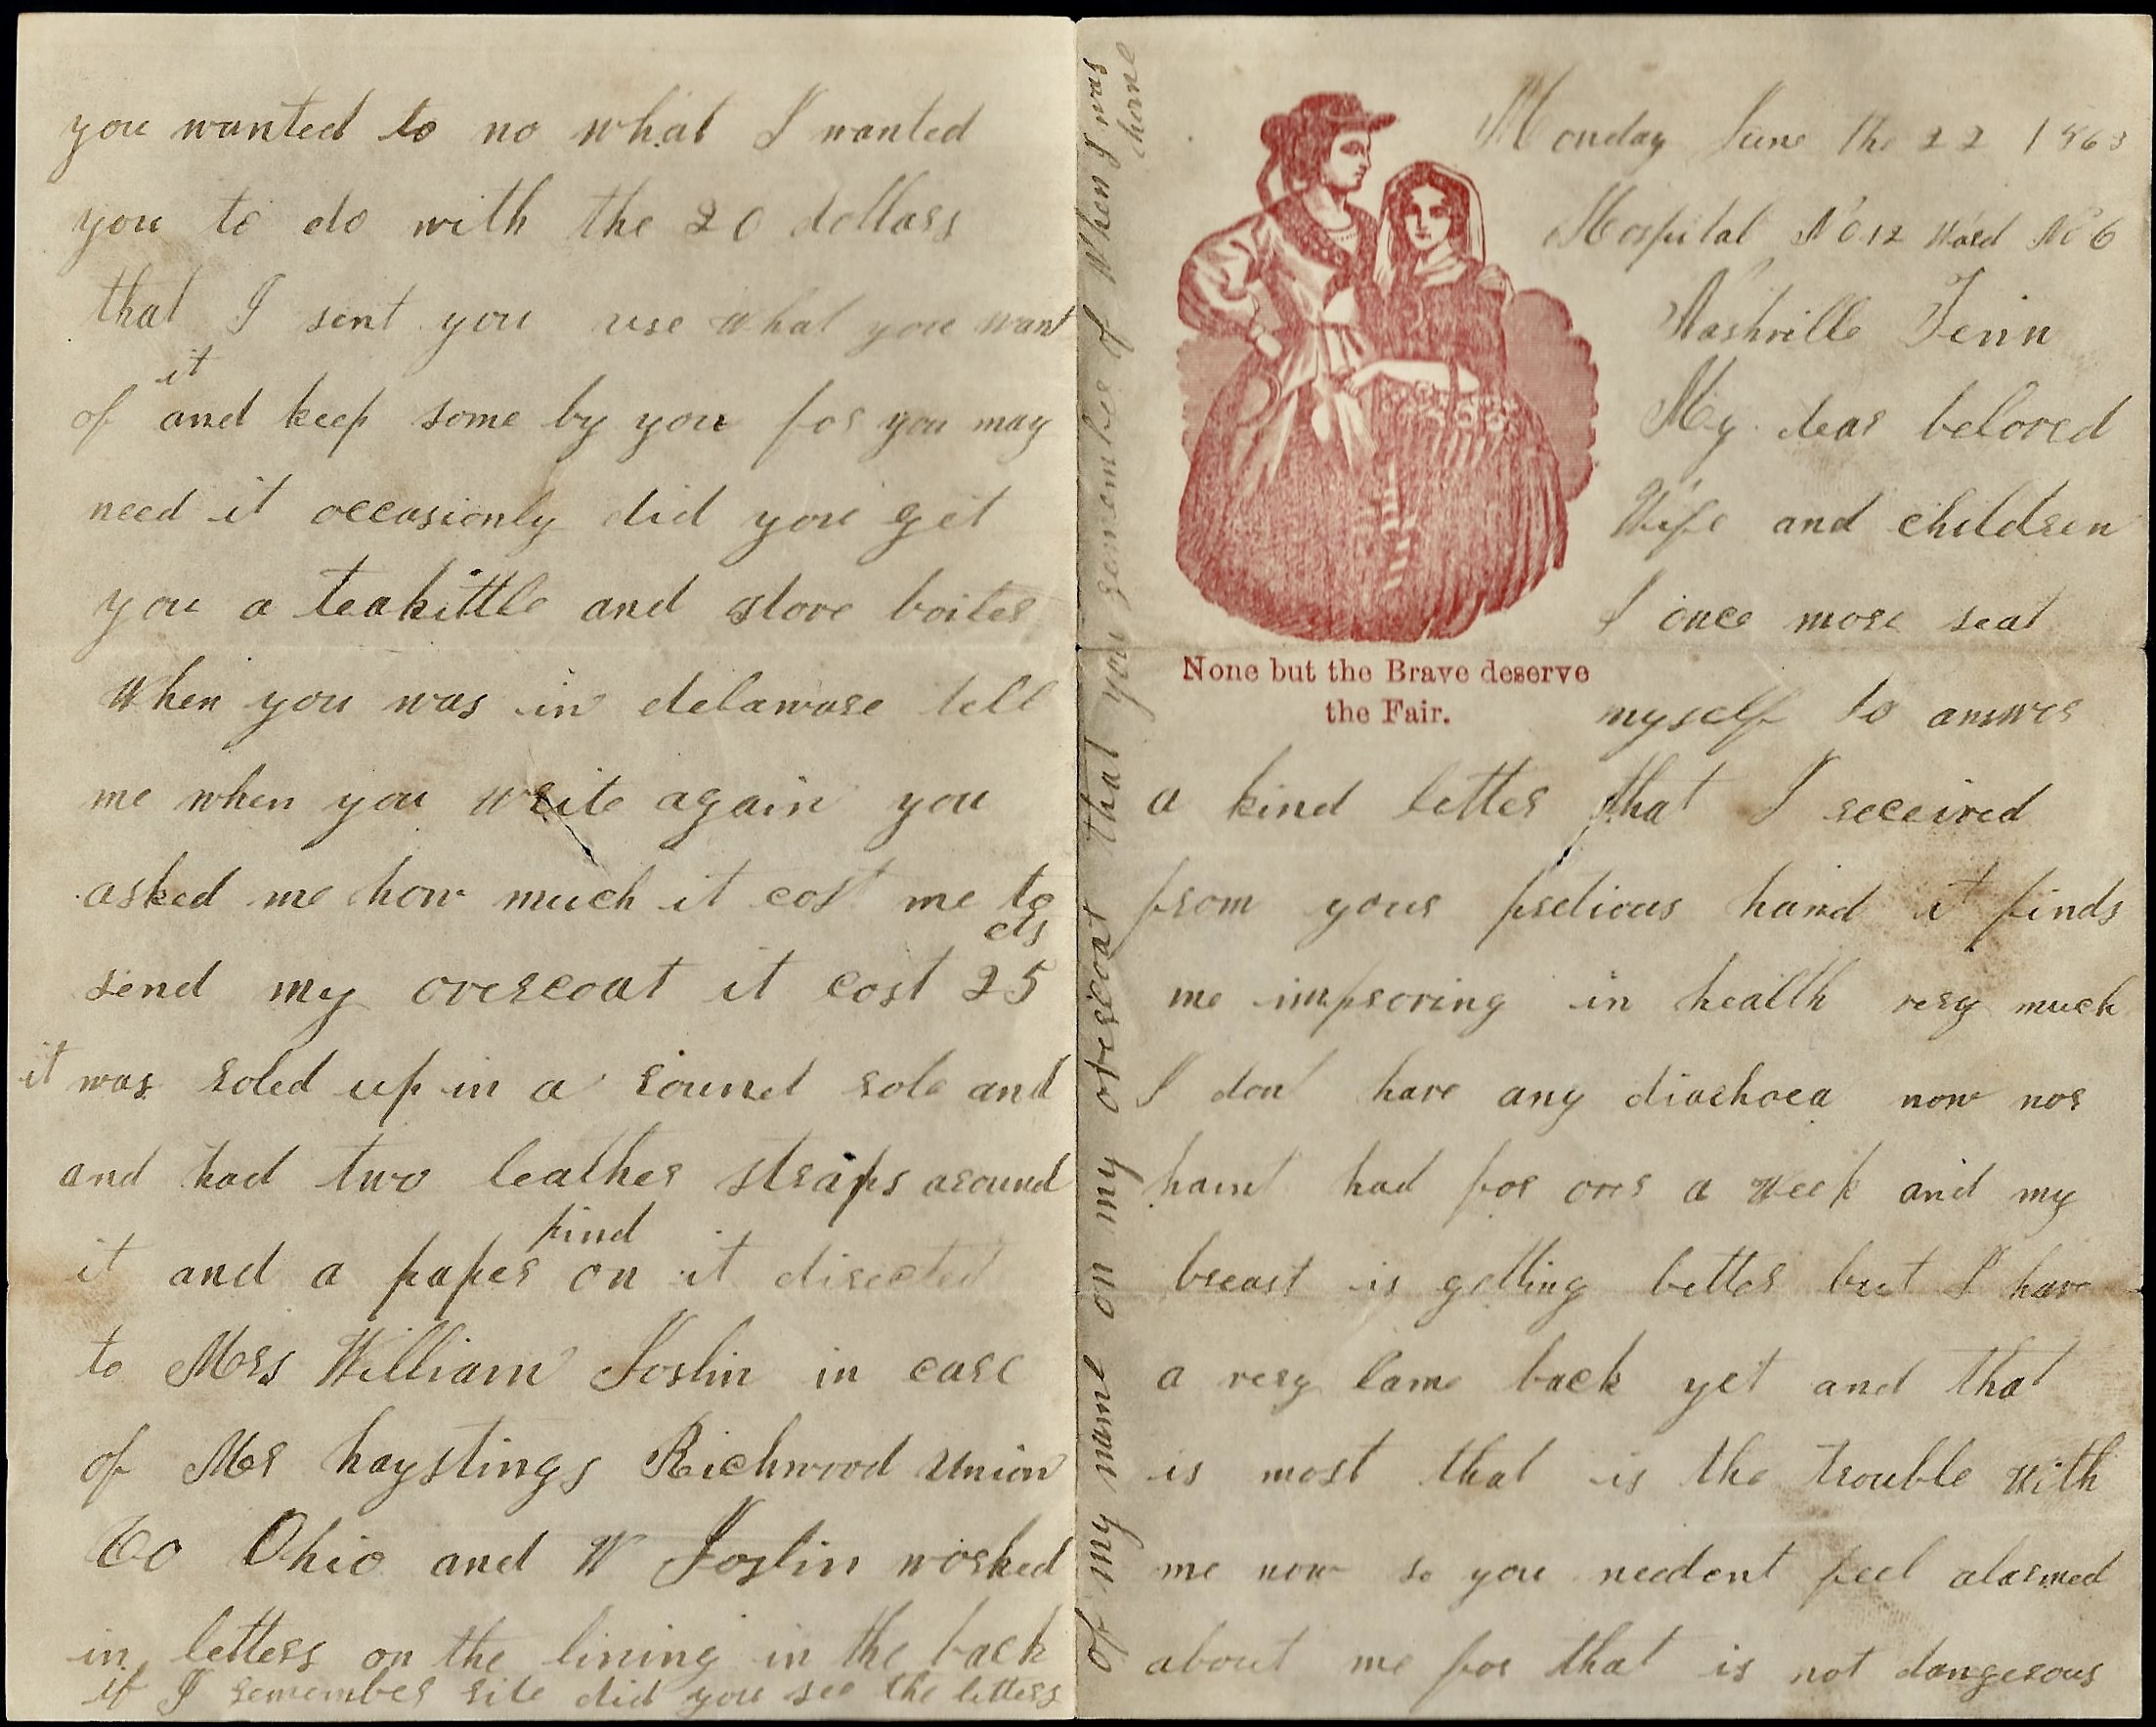 Monday June the 22 1863
Hospital No. 12 Ward No 6
Nashville Tenn
My dear beloved
Wife and children
I once more seat
None but the Brave deserve
the Fair.
myself to answer
a kind letter that I received
from your pretious hand it finds
me improving in health very much
I dont have any diarhoea now nor
haint had for over a week and my
breast is getting better but I have
a very lame back yet and that
is most that is the trouble with
me now so you needent feel alarmed
about me for that is not dangerous
you wanted to no what I wanted
you to do with the 20 dollars
that I sent you use what you want
of it and keep some by you for you may
need it occasionly did you get
you a teakittle and stove boiler
When you was in delaware tell
me when you write again you
asked me how much it cost me to
send my overcoat it cost 25 cts
it was roled up in a round role and
and had two leather straps around
it and a paper pind on it directed
to Mrs William Joslin in care
of Mr haystings Richwood Union
Co Ohio and W Joslin worked
in letters on the lining in the back
if I remember rite did you see the letters
of my name on my overcoat that you remember of When I was
home